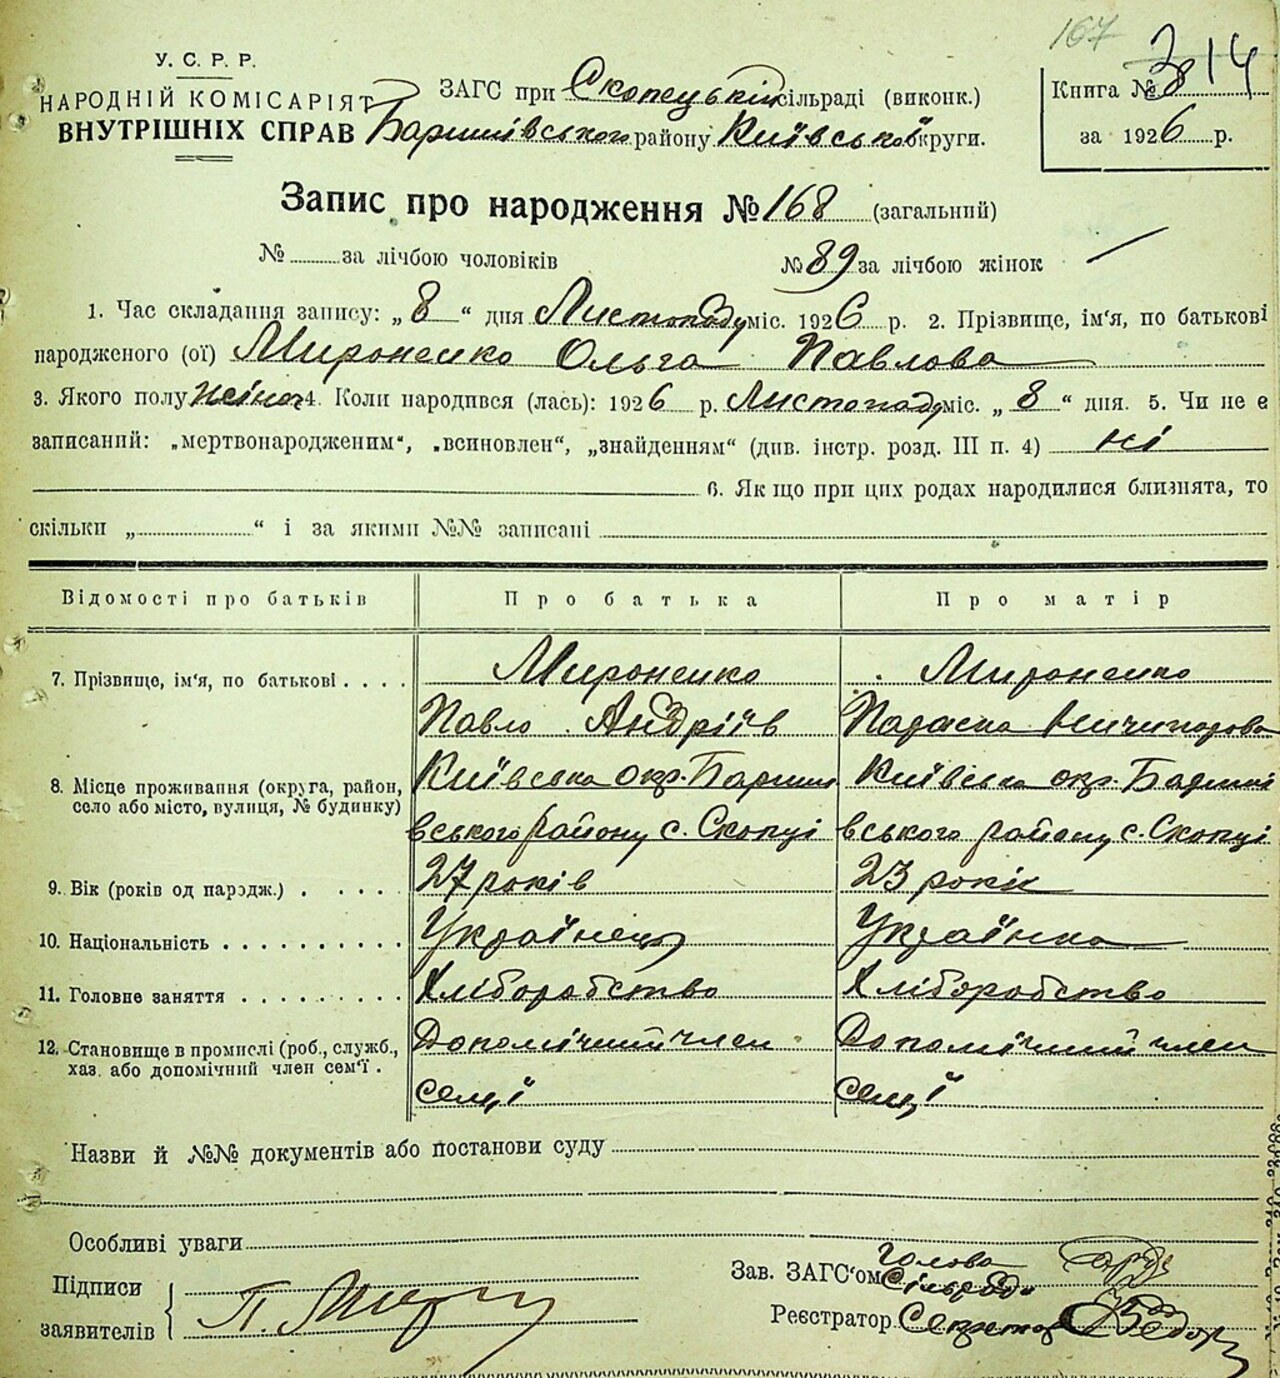 167
314
У. С. Р. Р.
НАРОДНІЙ КОМІСАРІЯТ
ВНУТРІШНІХ СПРАВ
ЗАГС при Скопецькій сільраді (виконк.)
Баришівського району Київської округи.
Книга № 8
за 1926 р.
Запис про народження № 168 (загальний)
№ за лічбою чоловіків № 89 за лічбою жінок
1. Час складання запису: „8“ дня Листопаду міс. 1926 р. 2. Прізвище, ім'я, по батькові
народженого (ої) Мироненко Ольга Павлова
3. Якого полу жіноч 4. Коли народився (лась): 1926 р. Листопаду міс. „8“ дня. 5. Чи не є
записаний: „мертвонародженим“, „всиновлен“, „знайденням“ (див. інстр. розд. III п. 4) ні
6. Якщо при цих родах народилися близнята, то
скільки „ “ і за якими №№ записані
Відомості про батьків Про батька Про матір
7. Прізвище, ім'я, по батькові . . . . Мироненко Мироненко
Павло Андріїв Параска Ничипорова
8. Місце проживання (округа, район, Київська окр. Бариші Київська окр. Бариші
село або місто, вулиця, № будинку) вського району с. Скопці вського району с. Скопці
9. Вік (років од народж.) . . . . . 27 років 23 років
10. Національність . . . . . . . . . . Українець Українка
11. Головне заняття . . . . . . . . . Хліборобство Хліборобство
12. Становище в промислі (роб., служб., Допомічний член Допомічний член
хаз. або допомічний член сем'ї . семʼї семʼї
Назви й №№ документів або постанови суду
Особливі уваги
Підписи
заявителів
П. Мирон
Зав. ЗАГС'ом Голова Сільради
Реєстратор Секретар